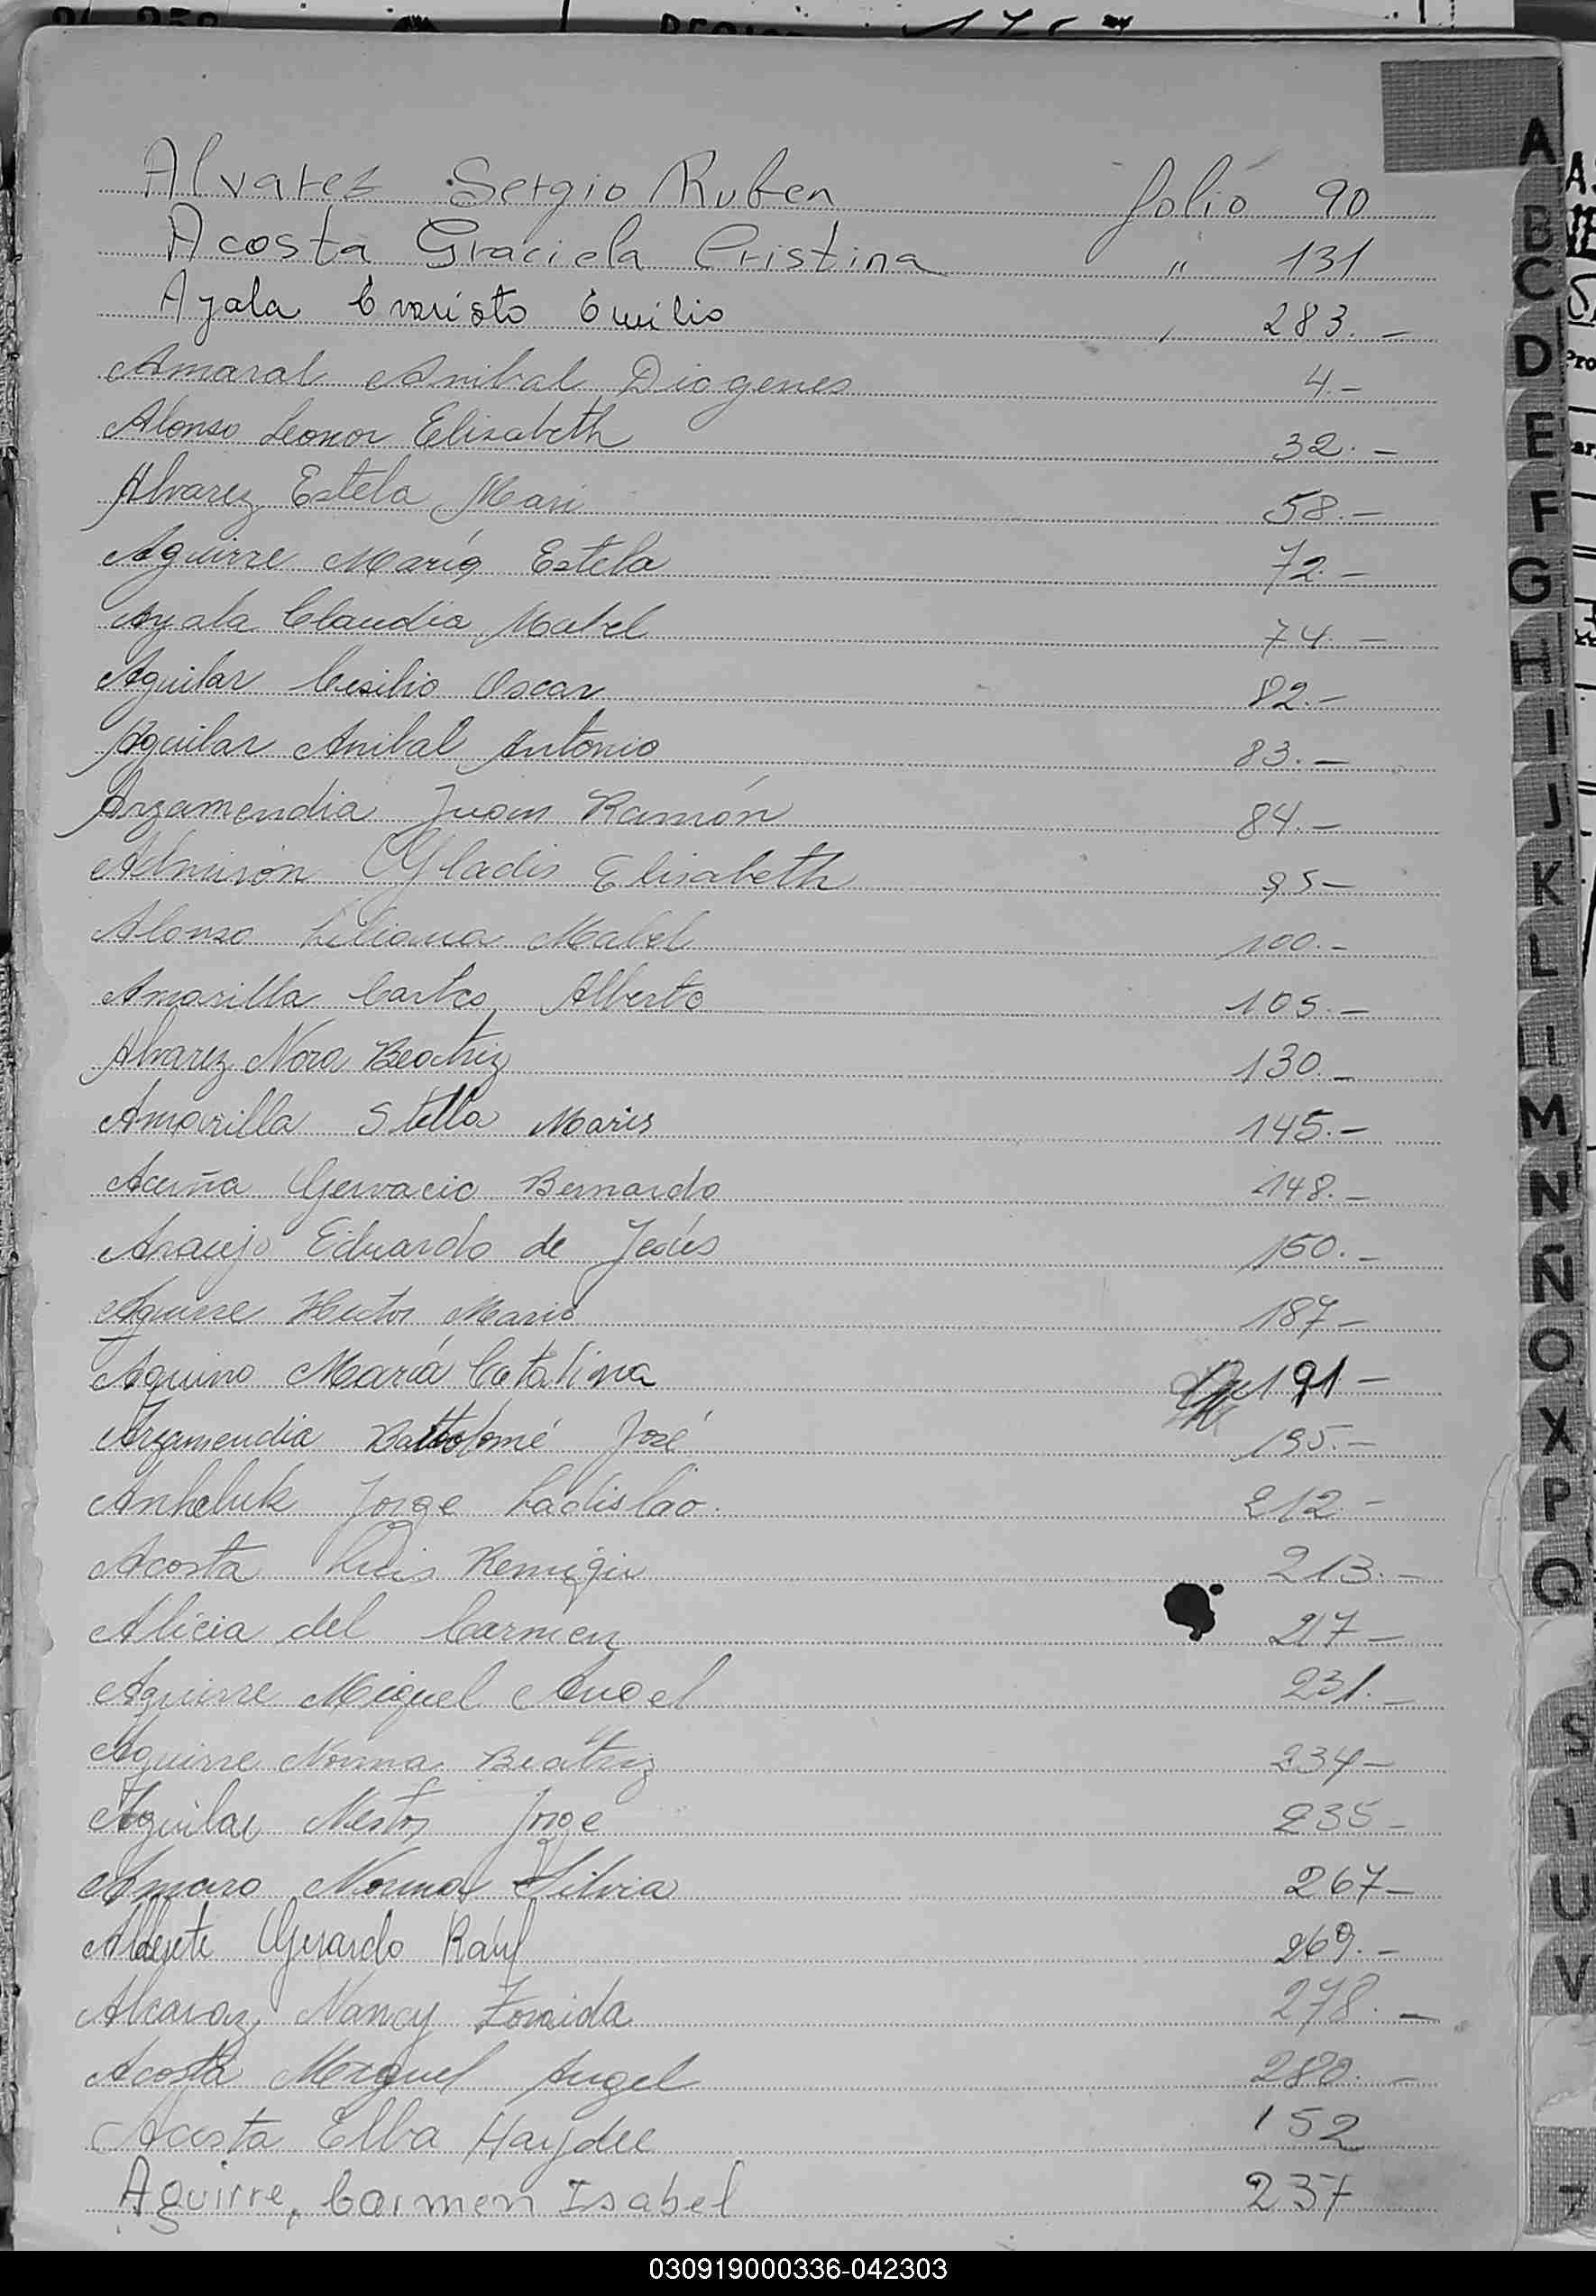 Alvarez Sergio Ruben folio 90
Acosta Graciela Cristina " 131
Ayala Evaristo Emilio " 283.-
Amaral Anibal Diogenes 4.-
Alonso Leonor Elisabeth 32.-
Alvarez Estela Mari 58.-
Aguirre María Estela 72.-
Ayala Claudia Mabel 74.-
Aguilar Cesilio Oscar 82.-
Aguilar Anibal Antonio 83.-
Arzamendia Juan Ramón 84.-
Gladis Elisabeth 95-
Alonso Liliana Mabel 100.-
Amarilla Carlos Alberto 105.-
Alvarez Nora Beatriz 130.-
Amarilla Stella Maris 145.-
Acuña Gervacio Bernardo 148.-
Araujo Eduardo de Jesús 150.-
Aguirre Hector Mario 187-
Aquino María Catalina 191-
Arzamendia Bartolomé José 195.-
Anheluk Jorge Ladislao. 212.-
Acosta Luis Remigio 213.-
Alicia del Carmen 217-
Aguirre Miguel Angel 231.-
Aguirre Norma Beatriz 234-
Aguilar Nestor Jorge 235-
Amaro Norma Silvia 267-
Alderete Gerardo Raúl 269.-
Alcaraz Nancy Zoraida 278.-
Acosta Miguel Angel 280.-
Acosta Elba Haydee 152
Aguirre, Carmen Isabel 237
A
B
C
D
E
F
G
H
I
J
K
L
M
N
Ñ
O
X
P
Q
S
U
V
030919000336-042303